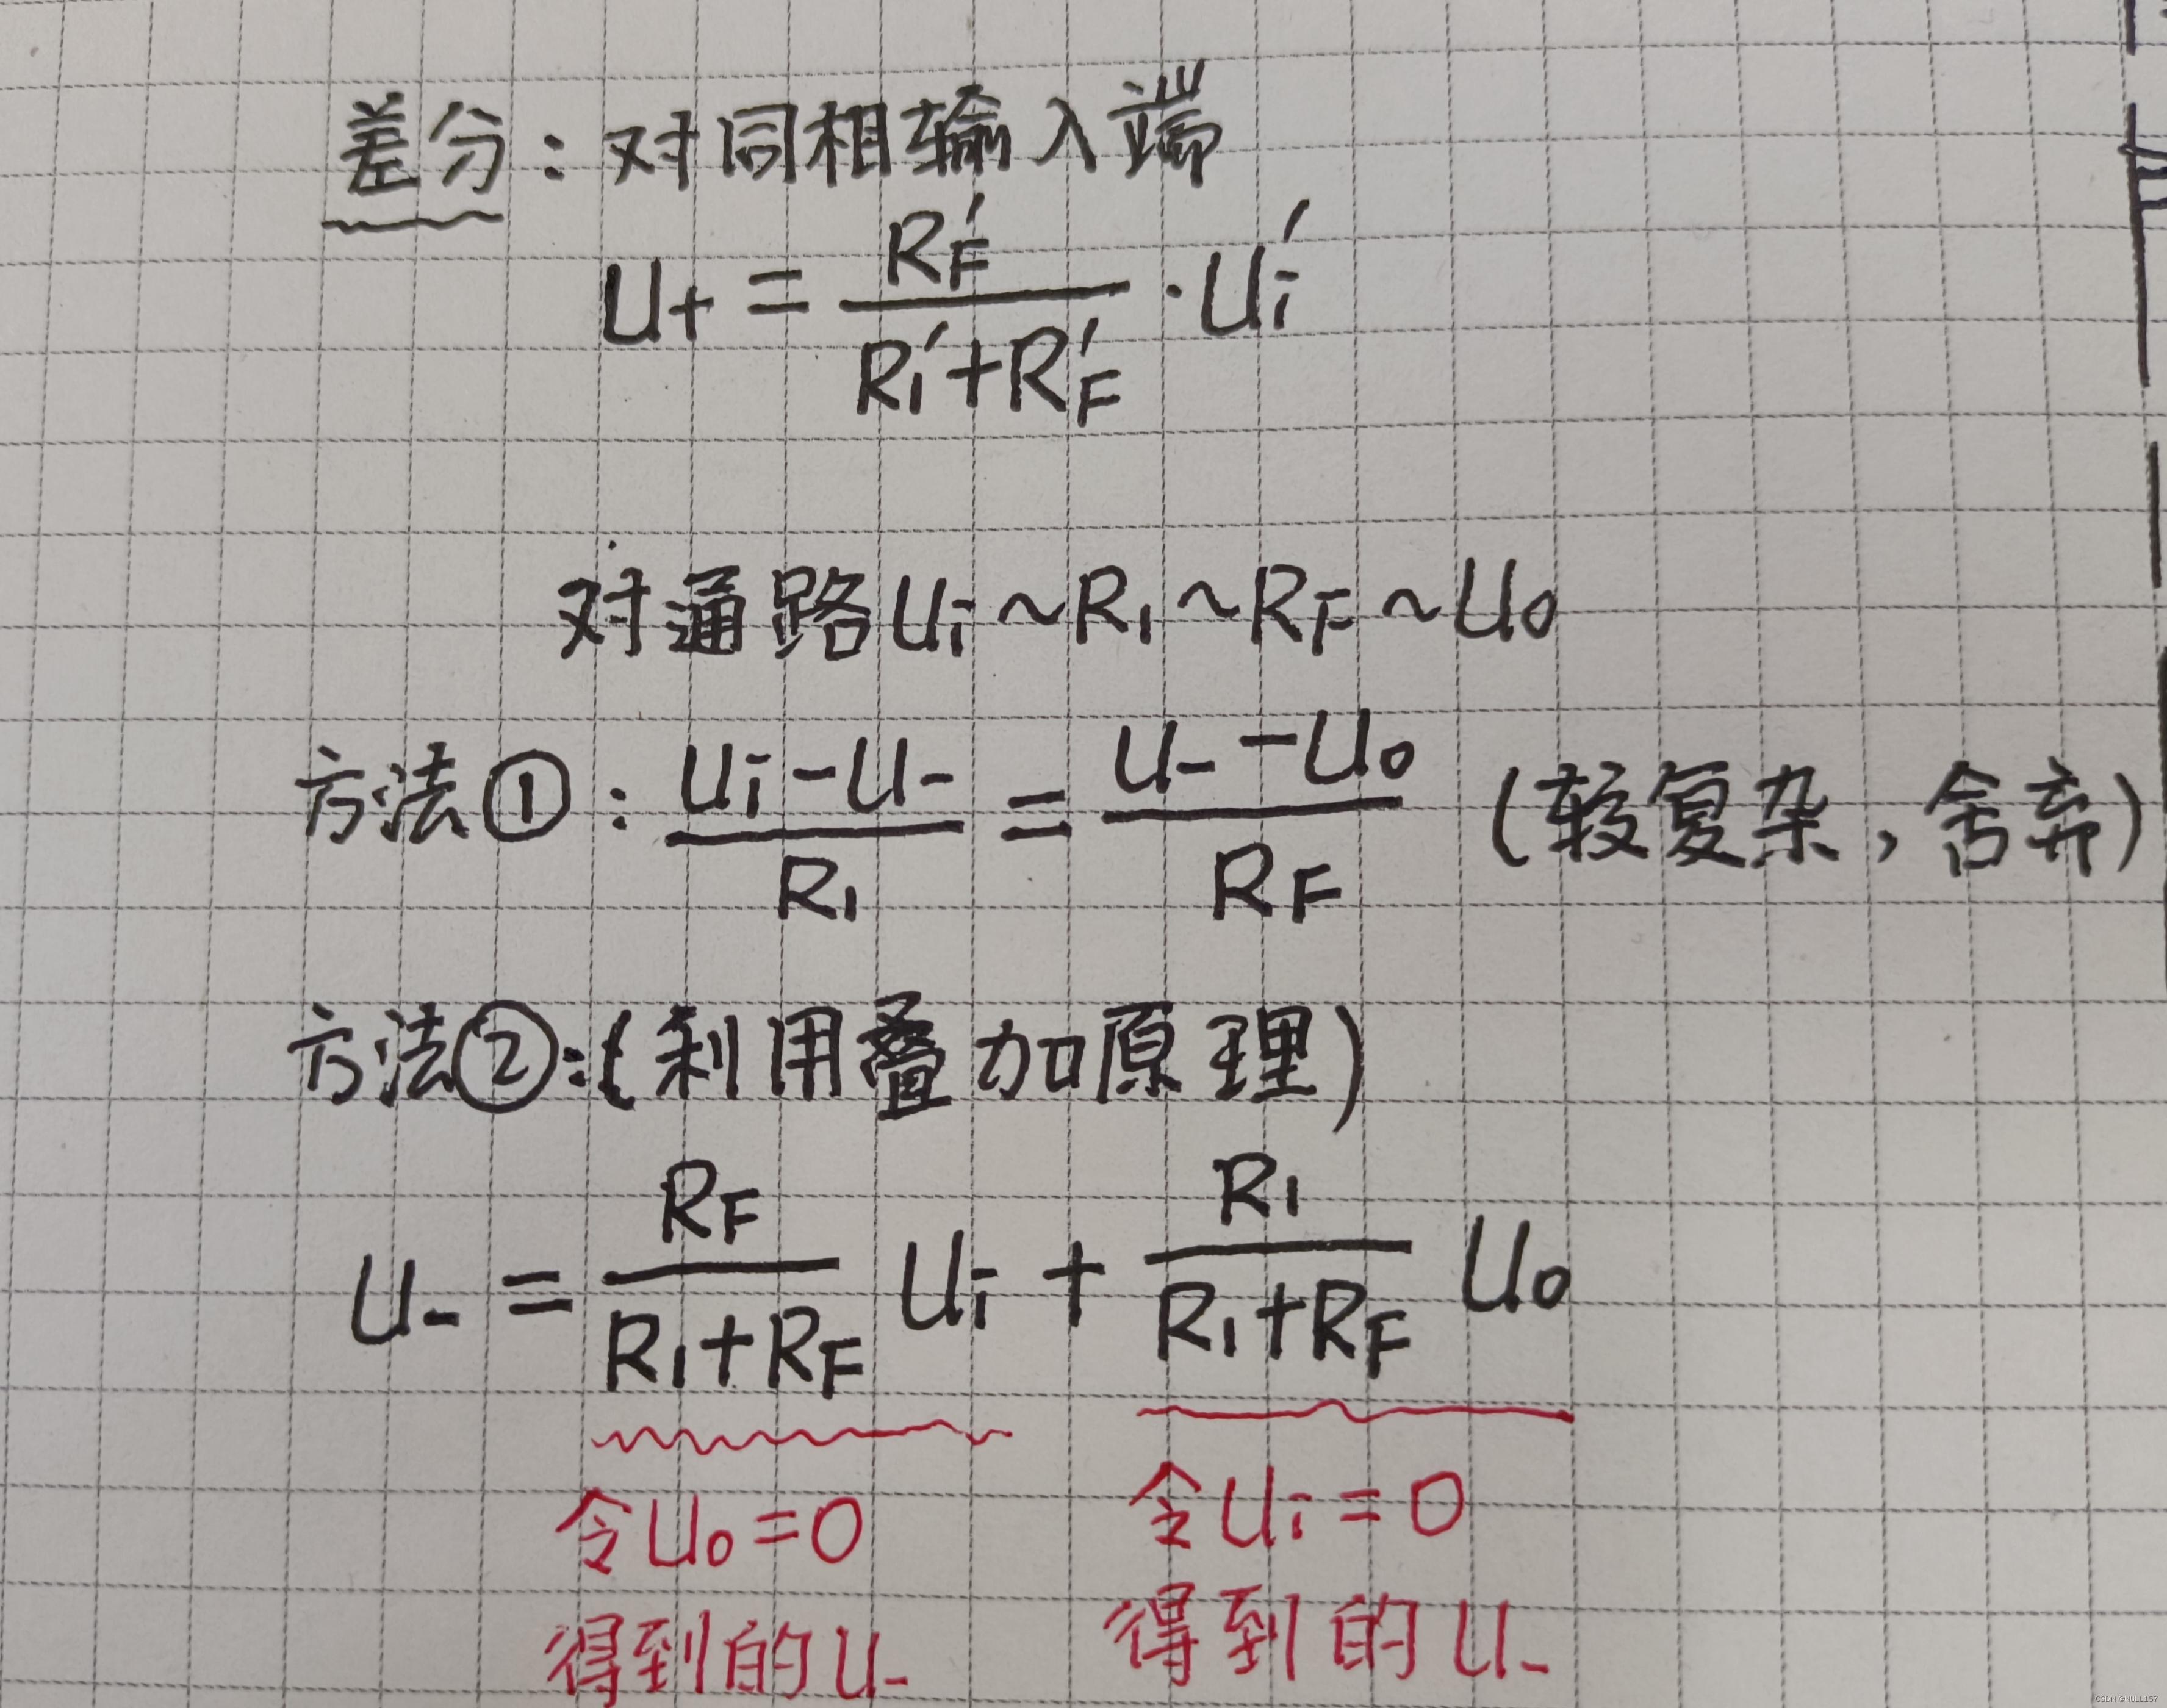 差分：对同相输入端
U+ = RF′/(R1′+RF′) · Ui′
对通路Ui~R1~RF~Uo
方法①：(Ui-U-)/R1 = (U- -Uo)/RF （较复杂，舍弃）
方法②：（利用叠加原理）
U- = RF/(R1+RF) Ui + R1/(R1+RF) Uo
令Uo=0 令Ui=0
得到的U- 得到的U-
CSDN @NULL157